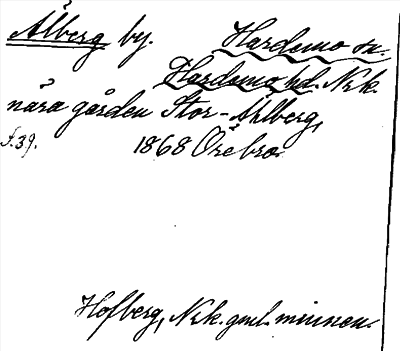 Ålberg by. Hardemo sn.
Hardemo hd. Nrk.
nära gården Stor-Åhlberg,
s. 39. 1868 Örebro
Hofberg, Nrk. gml. minnen.